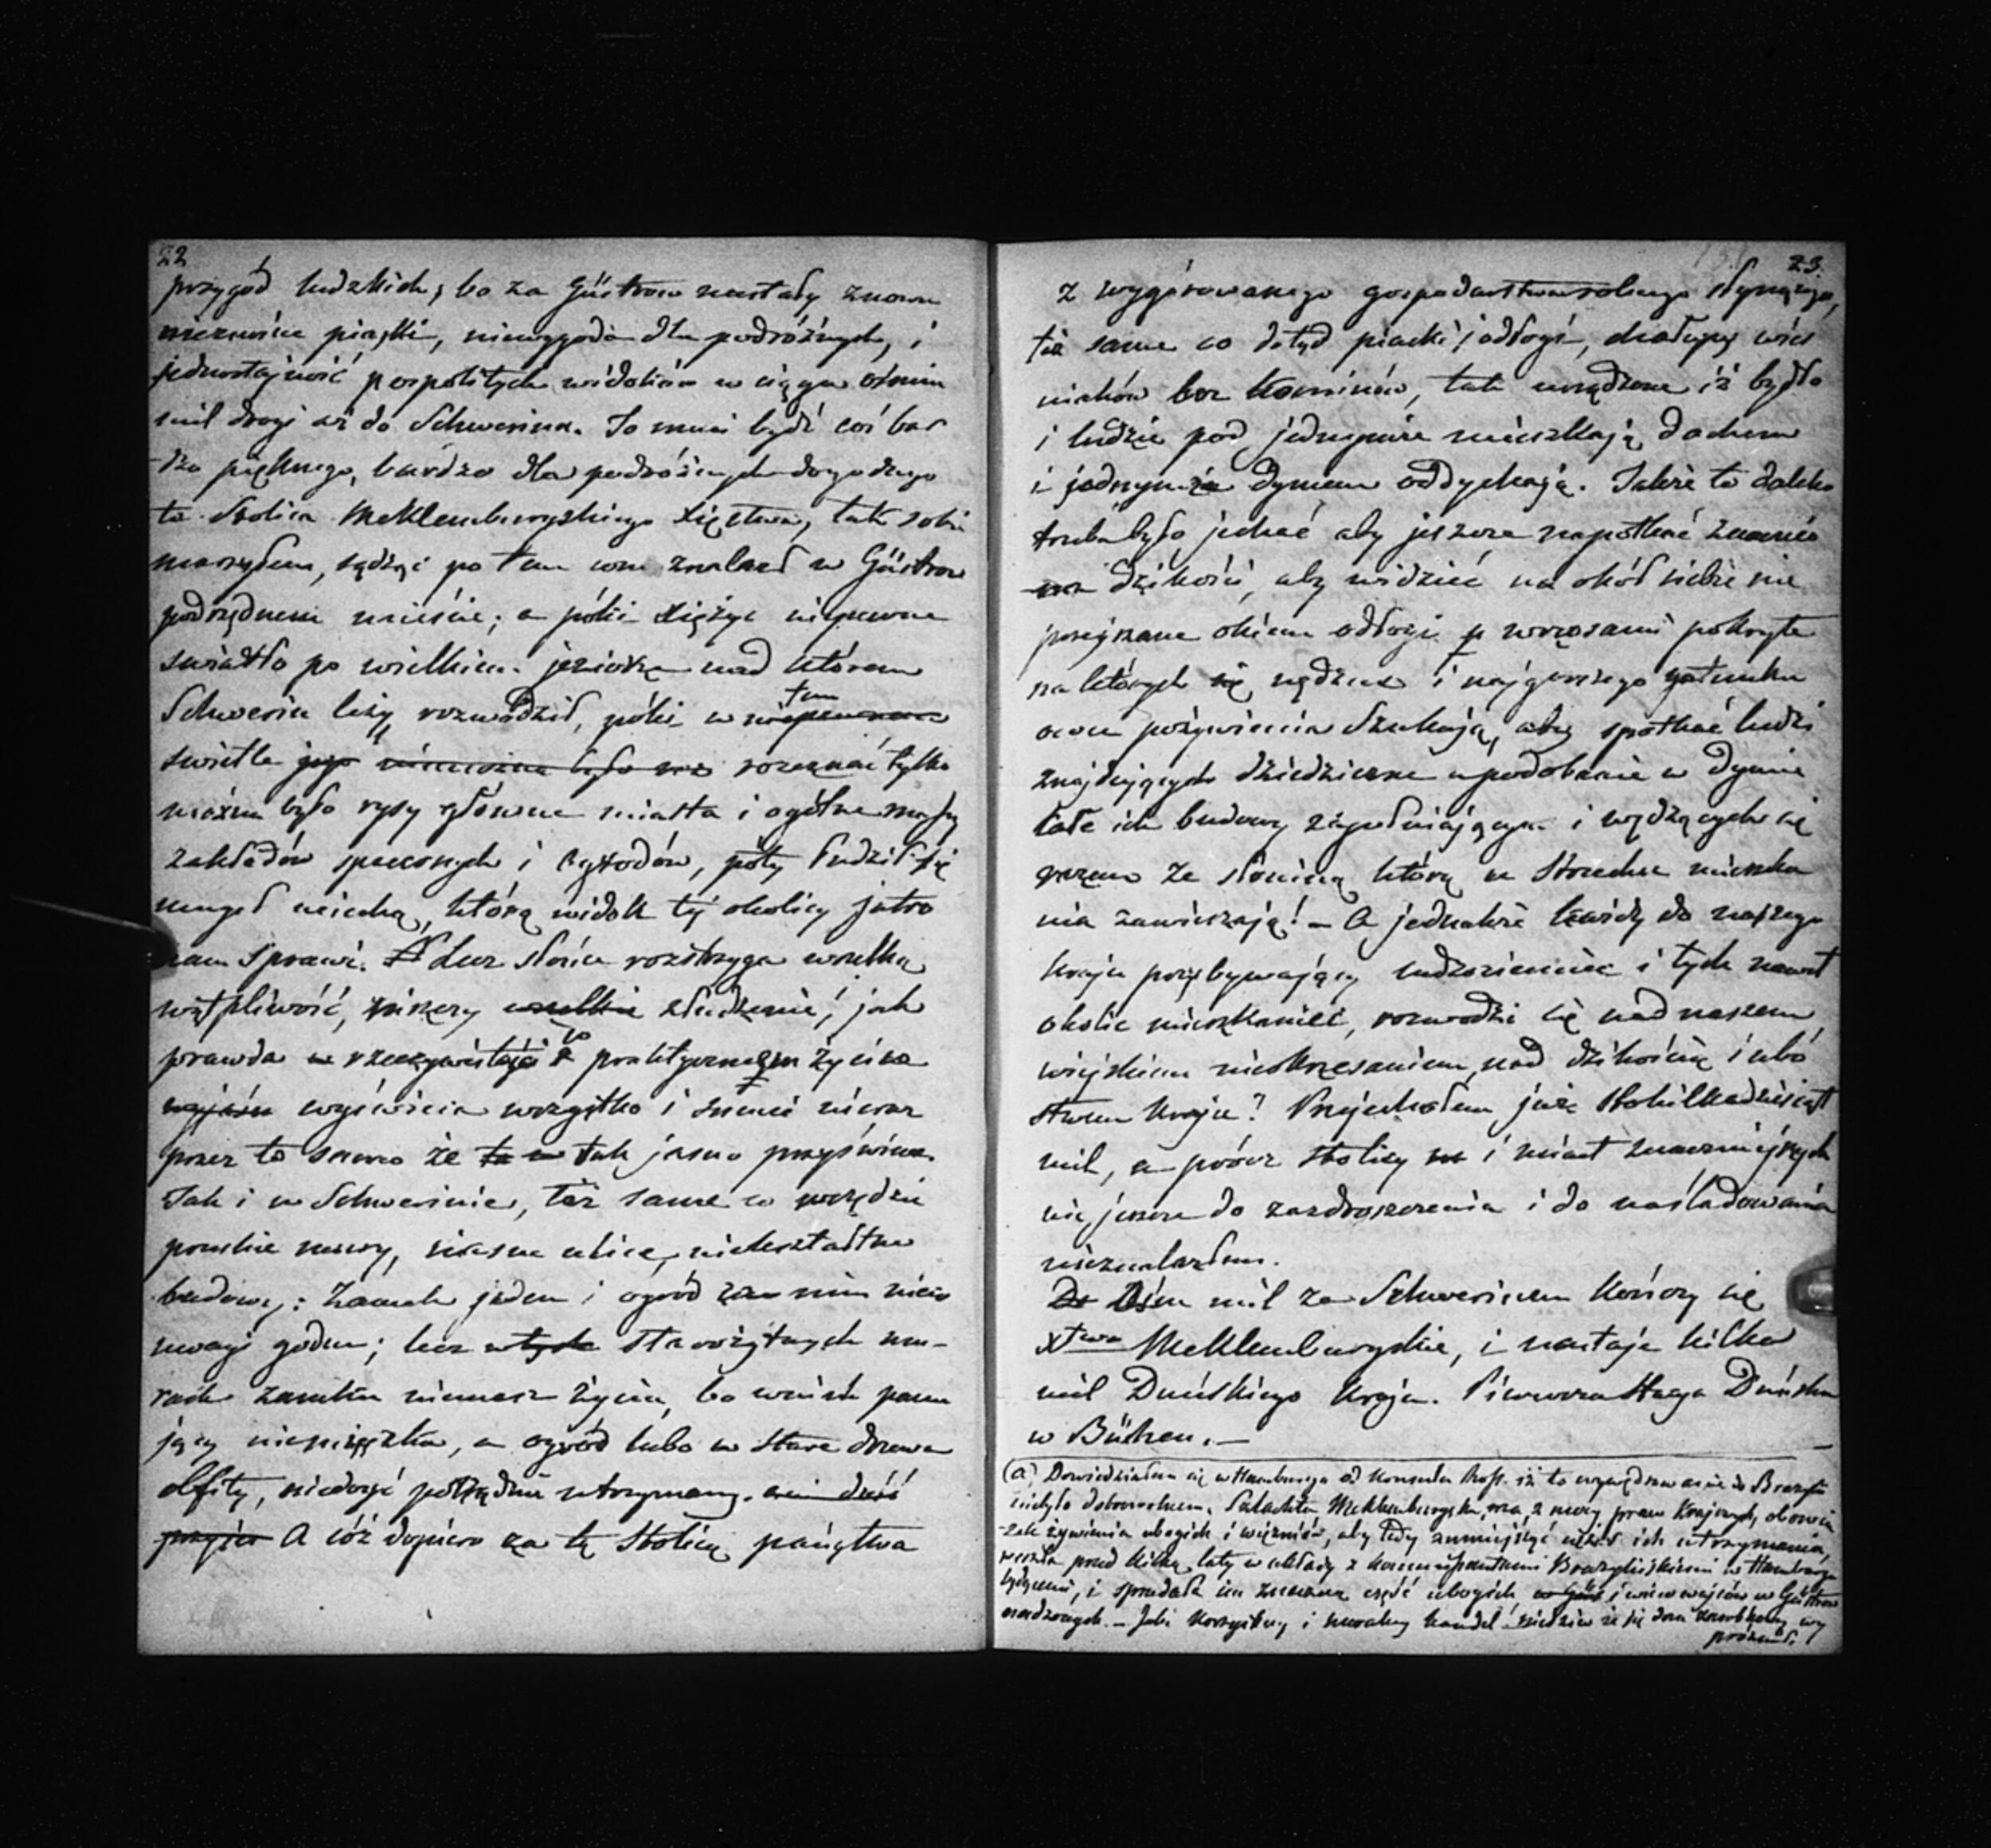 22
przygód ludzkich; bo za Güstrow nastały znowu
nieznośne piaski, niewygoda dla podróżnych, i
jednostajność pospolitych widoków w ciągu ośmiu
mil drogi aż do Schwerina. To musi być coś bar
dzo pięknego, bardzo dla podróżnych dogodnego
ta Stolica Meklemburgskiego Xięstwa, tak sobie
marzyłem, sądząc po tem com znalazł w Güstrow
podrzędnem mieście; a póki xiężyc niepewne
światło po wielkiem jeziorze nad którem
Schwerin leży rozwodził, póki w tem
świetle jego niemożna było roz rozeznać tylko
można było rysy główne miasta i ogólne massy
zakładów spacerowych i ogrodów, póty łudził się
umysł uciechą, którą widok téj okolicy jutro
nam sprawi. Lecz słońce rozstrzyga wszelką
wątpliwość, niszczy wszelkie złudzenie, jak
prawda w rzeczywistości praktycznem życiu
wyjaśn wyświeca wszystko i smuci nieraz
przez to samo że tak jasno przyświeca.
Tak i w Schwerinie, też same co wszędzie
pruskie mury, ciasne ulice, niekształtne
budowy: Zamek jeden i ogród za nim nieco
uwagi godne; lecz w tych starożytnych mu-
rach zamku niemasz życia, bo w nich panu
jący niemieszka, a ogród lubo w stare drzewa
obfity, niedosyć porządnie utrzymany.
A cóż dopiero za tę Stolicą państwa
23.
z wygórowanego gospodarstwa rolnego słynącego,
też same co dotąd piaski, odłogi, chałupy wieś
niaków bez kominów, tak urządzone iż bydło
i ludzie pod jednymże mieszkają dachem
i jednymże dymem oddychają. Także to daleko
trzeba było jechać aby jeszcze napotkać znamię
dzikości, aby widzieć na okół siebie nie
przejrzane okiem odłogi wrzosami pokryte
na których nędzne i najgorszego gatunku
owce pożywienia szukają, aby spotkać ludzi
znajdujących dziedziczne upodobanie w dymie
całe ich budowy zapełniającym i wędzących się
razem ze słoniną którą w Strzechu mieszka
nia zawieszają! — A jednakże każdy do naszego
kraju przybywający cudzoziemiec i tych nawet
okolic mieszkaniec, rozwodzi się nad naszem
wiejskiem nieokrzesaniem, nad dzikością i ubó
stwem kraju? Przejechałem już stokilkadziesiąt
mil, a prócz stolicy i miast znaczniejszych
nic jeszcze do zazdroszczenia i do naśladowania
nieznalazłem.
Ośm mil za Schwerinem kończy się
Xtwo Meklemburgskie, i nastaje kilka
mil Duńskiego kraju. Pierwsza Stacya Duńska
w Büchen. —
(a) Dowiedziałem się w Hamburgu od Konsula Ross. iż to wywędrowanie do Brazylii
niebyło dobrowolnem. Szlachta Meklemburgska, ma z mocy praw krajowych obowią
-zek żywienia ubogich i więźniów, aby tedy zmniejszyć ich utrzymania,
weszła przed kilką laty w układy z Brazylijskiemi w Hamburgu
będącemi, i sprzedała im znaczną część ubogich, i winowajców w Güstrow
osadzonych. — Jaki korzystny i moralny handel niedziw że się dom wy
próżnił.